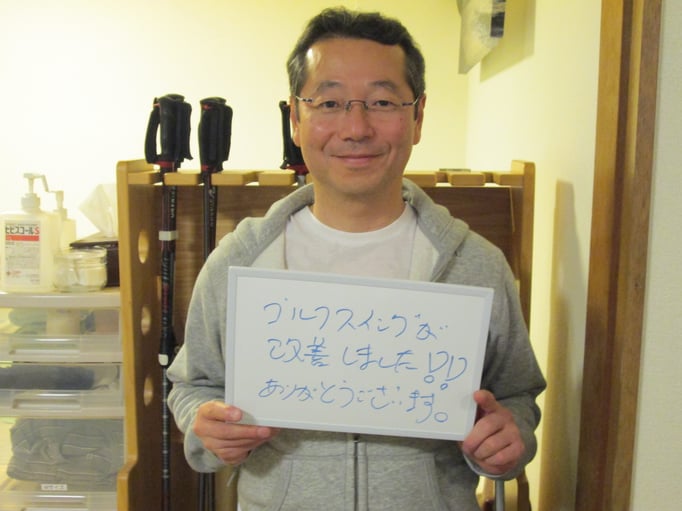 ヒビスコールS
ゴルフスイングが
改善しました!!
ありがとうございます。
Mサイズ